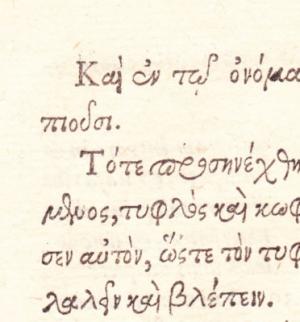 Καὶ ἐν τῷ ὀνόμα
πιοῦσι.
Τότε προσηνέχθη
μϟυος, τυφλὸς καὶ κωφ
σεν αὐτὸν, ὥστε τὸν τυφ
λαλεῖν καὶ βλέπειν.